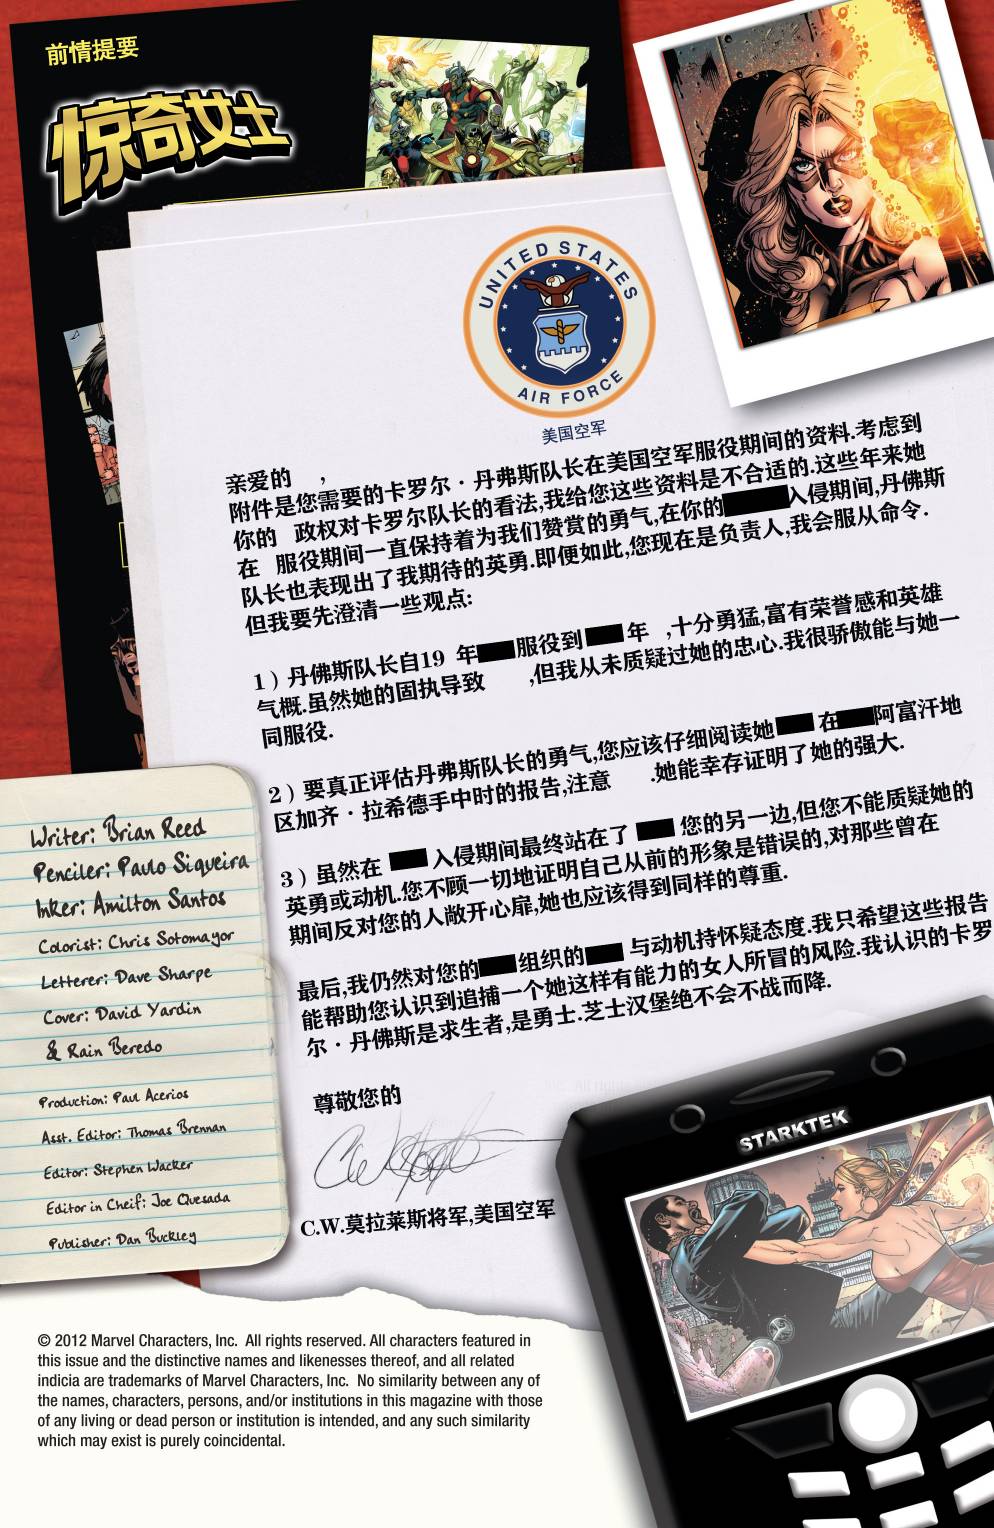 前情提要
惊奇女士
UNITED STATES
AIR FORCE
美国空军
亲爱的 ,
附件是您需要的卡罗尔·丹弗斯队长在美国空军服役期间的资料.考虑到
你的 政权对卡罗尔队长的看法,我给您这些资料是不合适的.这些年来她
在 服役期间一直保持着为我们赞赏的勇气,在你的 入侵期间,丹佛斯
队长也表现出了我期待的英勇.即便如此,您现在是负责人,我会服从命令.
但我要先澄清一些观点:
1）丹佛斯队长自19 年 服役到 年 ,十分勇猛,富有荣誉感和英雄
气概.虽然她的固执导致 ,但我从未质疑过她的忠心.我很骄傲能与她一
同服役.
2）要真正评估丹弗斯队长的勇气,您应该仔细阅读她 在 阿富汗地
区加齐·拉希德手中时的报告,注意 .她能幸存证明了她的强大.
3）虽然在 入侵期间最终站在了 您的另一边,但您不能质疑她的
英勇或动机.您不顾一切地证明自己从前的形象是错误的,对那些曾在
期间反对您的人敞开心扉,她也应该得到同样的尊重.
最后,我仍然对您的 组织的 与动机持怀疑态度.我只希望这些报告
能帮助您认识到追捕一个她这样有能力的女人所冒的风险.我认识的卡罗
尔·丹佛斯是求生者,是勇士.芝士汉堡绝不会不战而降.
尊敬您的
C.W.莫拉莱斯将军,美国空军
Writer: Brian Reed
Penciler: Paulo Siqueira
Inker: Amilton Santos
Colorist: Chris Sotomayor
Letterer: Dave Sharpe
Cover: David Yardin
& Rain Beredo
Production: Paul Acerios
Asst. Editor: Thomas Brennan
Editor: Stephen Wacker
Editor in Cheif: Joe Quesada
Publisher: Dan Buckley
STARKTEK
© 2012 Marvel Characters, Inc. All rights reserved. All characters featured in
this issue and the distinctive names and likenesses thereof, and all related
indicia are trademarks of Marvel Characters, Inc. No similarity between any of
the names, characters, persons, and/or institutions in this magazine with those
of any living or dead person or institution is intended, and any such similarity
which may exist is purely coincidental.